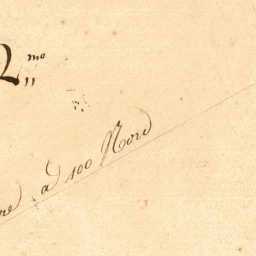 2me
ne à 100 Nord